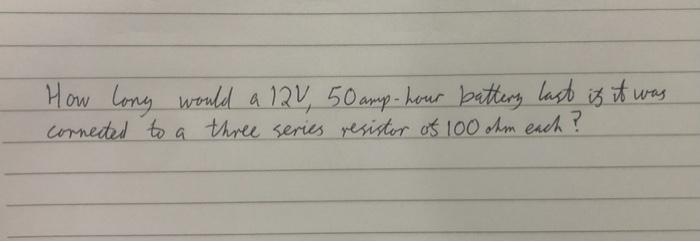 How long would a 12V, 50 amp-hour battery last if it was
connected to a three series resistor of 100 ohm each?